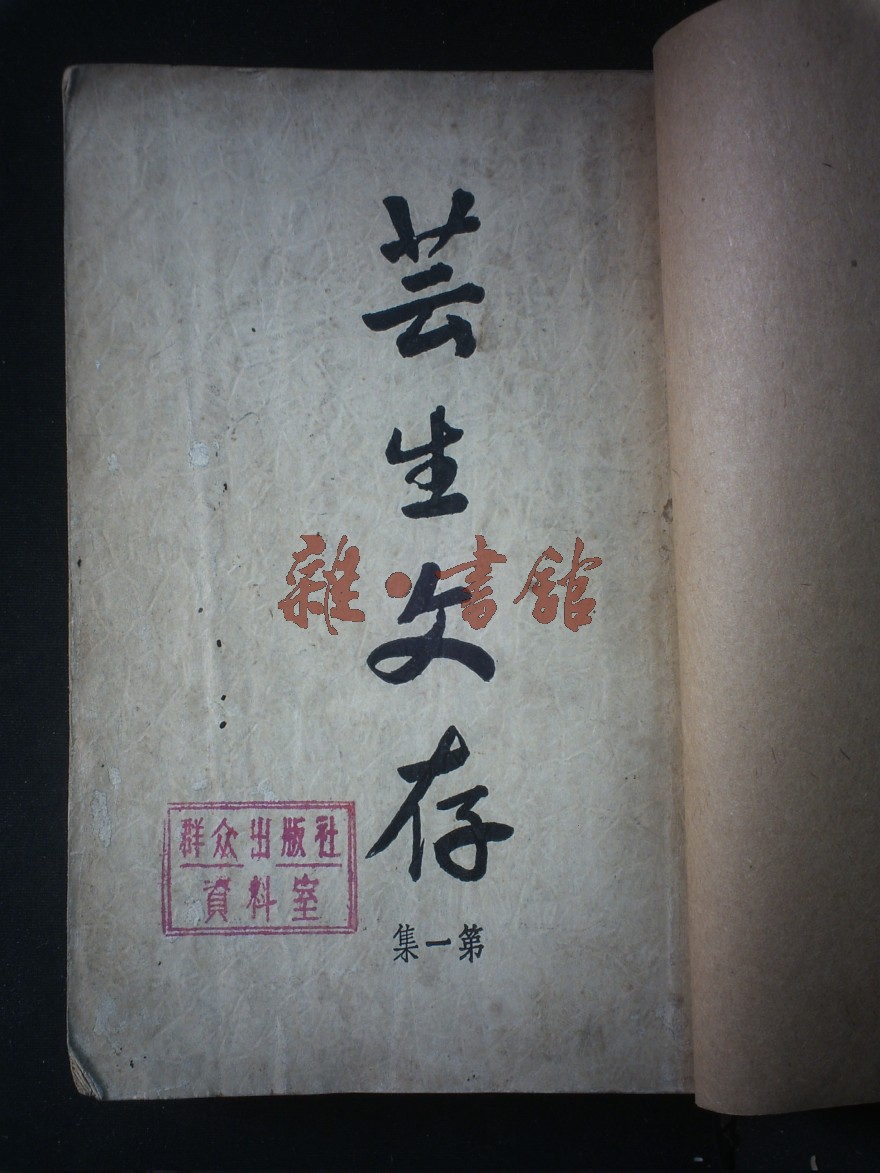 芸生文存
雜·書館
群众出版社
資料室
集一第